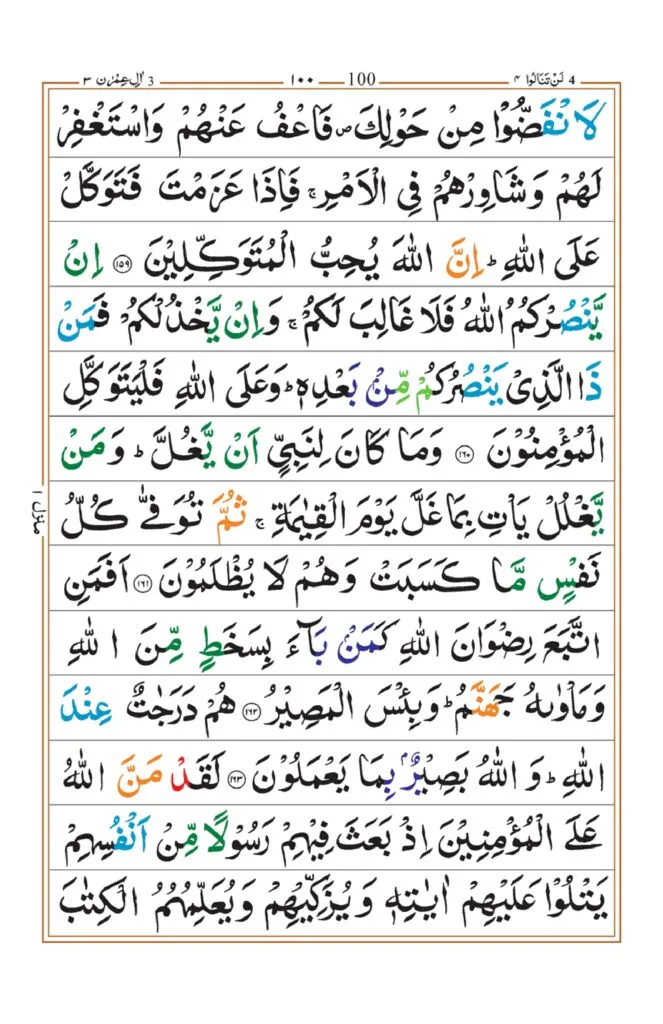 4 لَنْ تَنَالُوْا ۴ 100 ۱۰۰ 3 اٰلِ عِمْرٰن ۳
لَا نْفَضُّوْا مِنْ حَوْلِكَ ص فَاعْفُ عَنْهُمْ وَاسْتَغْفِرْ
لَهُمْ وَشَاوِرْهُمْ فِى الْاَمْرِ ج فَاِذَا عَزَمْتَ فَتَوَكَّلْ
عَلَى اللّٰهِ ط اِنَّ اللّٰهَ يُحِبُّ الْمُتَوَكِّلِيْنَ ۱۵۹ اِنْ
يَّنْصُرْكُمُ اللّٰهُ فَلَا غَالِبَ لَكُمْ ج وَاِنْ يَّخْذُلْكُمْ فَمَنْ
ذَا الَّذِىْ يَنْصُرُكُمْ مِّنْۢ بَعْدِهٖ ط وَعَلَى اللّٰهِ فَلْيَتَوَكَّلِ
الْمُؤْمِنُوْنَ ۱۶۰ وَمَا كَانَ لِنَبِىٍّ اَنْ يَّغُلَّ ط وَمَنْ
يَّغْلُلْ يَاْتِ بِمَا غَلَّ يَوْمَ الْقِيٰمَةِ ج ثُمَّ تُوَفّٰى كُلُّ
نَفْسٍ مَّا كَسَبَتْ وَهُمْ لَا يُظْلَمُوْنَ ۱۶۱ اَفَمَنِ
اتَّبَعَ رِضْوَانَ اللّٰهِ كَمَنْۢ بَآءَ بِسَخَطٍ مِّنَ اللّٰهِ
وَمَاْوٰىهُ جَهَنَّمُ ط وَبِئْسَ الْمَصِيْرُ ۱۶۲ هُمْ دَرَجٰتٌ عِنْدَ
اللّٰهِ ط وَاللّٰهُ بَصِيْرٌۢ بِمَا يَعْمَلُوْنَ ۱۶۳ لَقَدْ مَنَّ اللّٰهُ
عَلَى الْمُؤْمِنِيْنَ اِذْ بَعَثَ فِيْهِمْ رَسُوْلًا مِّنْ اَنْفُسِهِمْ
يَتْلُوْا عَلَيْهِمْ اٰيٰتِهٖ وَيُزَكِّيْهِمْ وَيُعَلِّمُهُمُ الْكِتٰبَ
منزل ۱